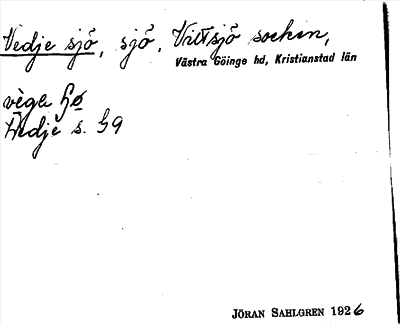 Vedje sjö, sjö, Vittsjö socken,
Västra Göinge hd, Kristianstad län
vèga
Vedje s. G9
JÖRAN SAHLGREN 1926